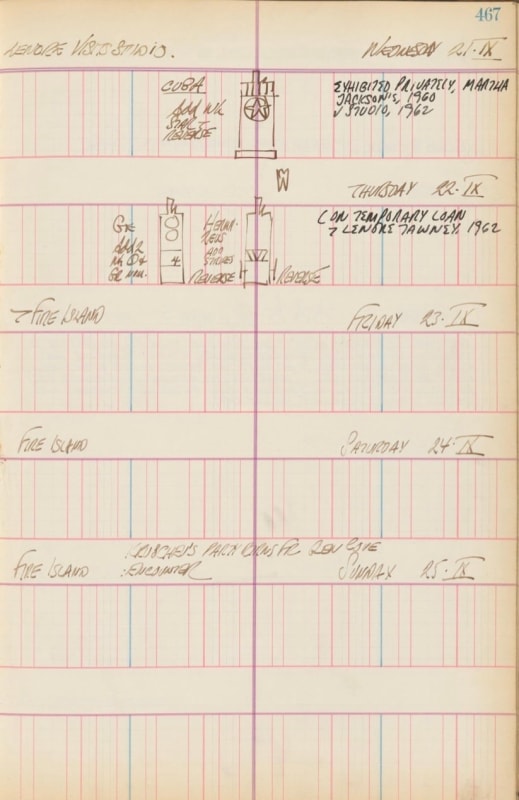 467
LENORE VISITS STUDIO.
WEDNESDAY 21·IX
CUBA
ADD NR
START
REVERSE
EXHIBITED PRIVATELY, MARTHA
JACKSON'S, 1960
√ STUDIO, 1962
THURSDAY 22·IX
GE
ADD 2
NR O 4
GR
4
HERM-
ADD
STRIPES
REVERSE
REVERSE
( ON TEMPORARY LOAN
→ LENORE TAWNEY, 1962
→ FIRE ISLAND
FRIDAY 23·IX
FIRE ISLAND
SATURDAY 24·IX
PARTY
COVE
FIRE ISLAND
:ENCOUNTER
SUNDAY 25·IX